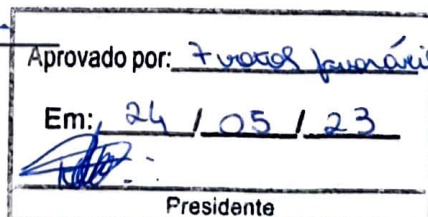 Aprovado por: 7 votos
Em: 24 / 05 / 23
Presidente